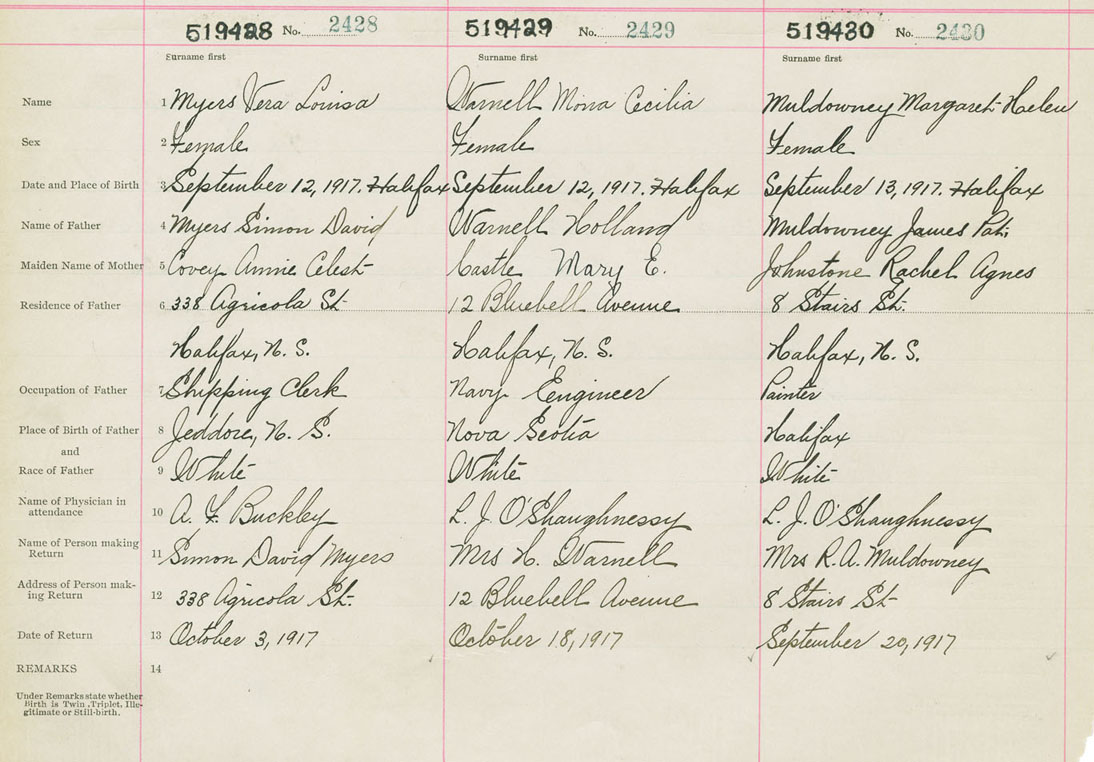 519428 No. 2428 519429 No. 2429 519430 No. 2430
Surname first Surname first Surname first
Name 1 Myers Vera Louisa Warnell Mona Cecilia Muldowney Margaret Helen
Sex 2 Female Female Female
Date and Place of Birth 3 September 12, 1917. Halifax September 12, 1917. Halifax September 13, 1917. Halifax
Name of Father 4 Myers Simon David Warnell Holland Muldowney James Pat.
Maiden Name of Mother 5 Covey Annie Celest Castle Mary E. Johnstone Rachel Agnes
Residence of Father 6 338 Agricola St 12 Bluebell Avenue 8 Stairs St.
Halifax, N. S. Halifax, N. S. Halifax, N. S.
Occupation of Father 7 Shipping Clerk Navy Eengineer Painter
Place of Birth of Father 8 Jeddore, N. S. Nova Scotia Halifax
and
Race of Father 9 White White White
Name of Physician in
attendance 10 A. F. Buckley L. J. O'Shaughnessy L. J. O'Shaughnessy
Name of Person making
Return 11 Simon David Myers Mrs H. Warnell Mrs R. A. Muldowney
Address of Person mak-
ing Return 12 338 Agricola St. 12 Bluebell Avenue 8 Stairs St
Date of Return 13 October 3, 1917 October 18, 1917 September 20, 1917
REMARKS 14
Under Remarks state whether
Birth is Twin, Triplet, Ille-
gitimate or Still-birth.